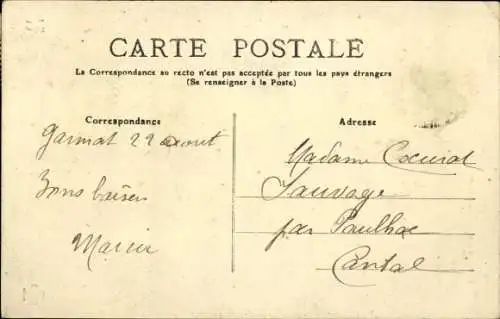 CARTE POSTALE
La Correspondance au recto n'est pas acceptée par tous les pays étrangers
(Se renseigner à la Poste)
Correspondance
Adresse
22 aout
Bons baisers
Madame
Sauvage
par Paulhac
Cantal